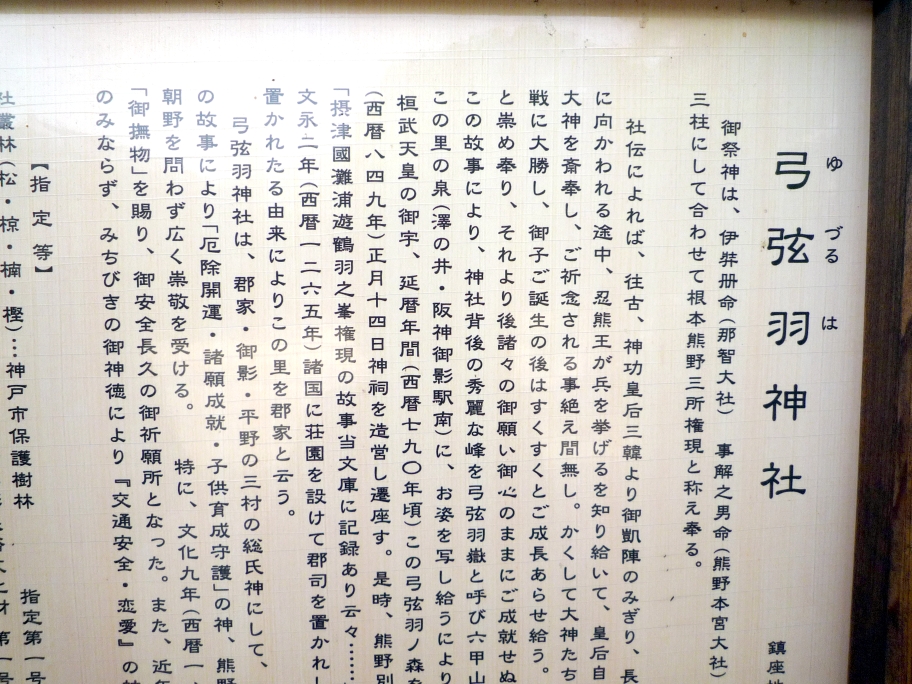 弓弦羽神社
ゆづるは
鎮座地
御祭神は、伊弉册命(那智大社) 事解之男命(熊野本宮大社)
三柱にして合わせて根本熊野三所権現と称え奉る。
社伝によれば、往古、神功皇后三韓より御凱陣のみぎり、長
に向かわれる途中、忍熊王が兵を挙げるを知り給いて、皇后自
大神を斎奉し、ご祈念される事絶え間無し。かくして大神たち
戦に大勝し、御子ご誕生の後はすくすくとご成長あらせ給う。
と崇め奉り、それより後諸々の御願い御心のままにご成就せぬ
この故事により、神社背後の秀麗な峰を弓弦羽嶽と呼び六甲山
この里の泉(澤の井・阪神御影駅南)に、お姿を写し給うにより
桓武天皇の御宇、延暦年間(西暦七九〇年頃)この弓弦羽ノ森を
(西暦八四九年)正月十四日神祠を造営し遷座す。是時、熊野別
「摂津國灘浦遊鶴羽之峯権現の故事当文庫に記録あり云々……
文永二年(西暦一二六五年)諸国に荘園を設けて郡司を置かれし
置かれたる由来によりこの里を郡家と云う。
弓弦羽神社は、郡家・御影・平野の三村の総氏神にして、
の故事により「厄除開運・諸願成就・子供育成守護」の神、熊野
朝野を問わず広く崇敬を受ける。 特に、文化九年(西暦一、
「御撫物」を賜り、御安全長久の御祈願所となった。また、近年
のみならず、みちびきの御神徳により『交通安全・恋愛』の
【指定等】
社叢林(松・椋・楠・樫)…神戸市保護樹林 指定第一号